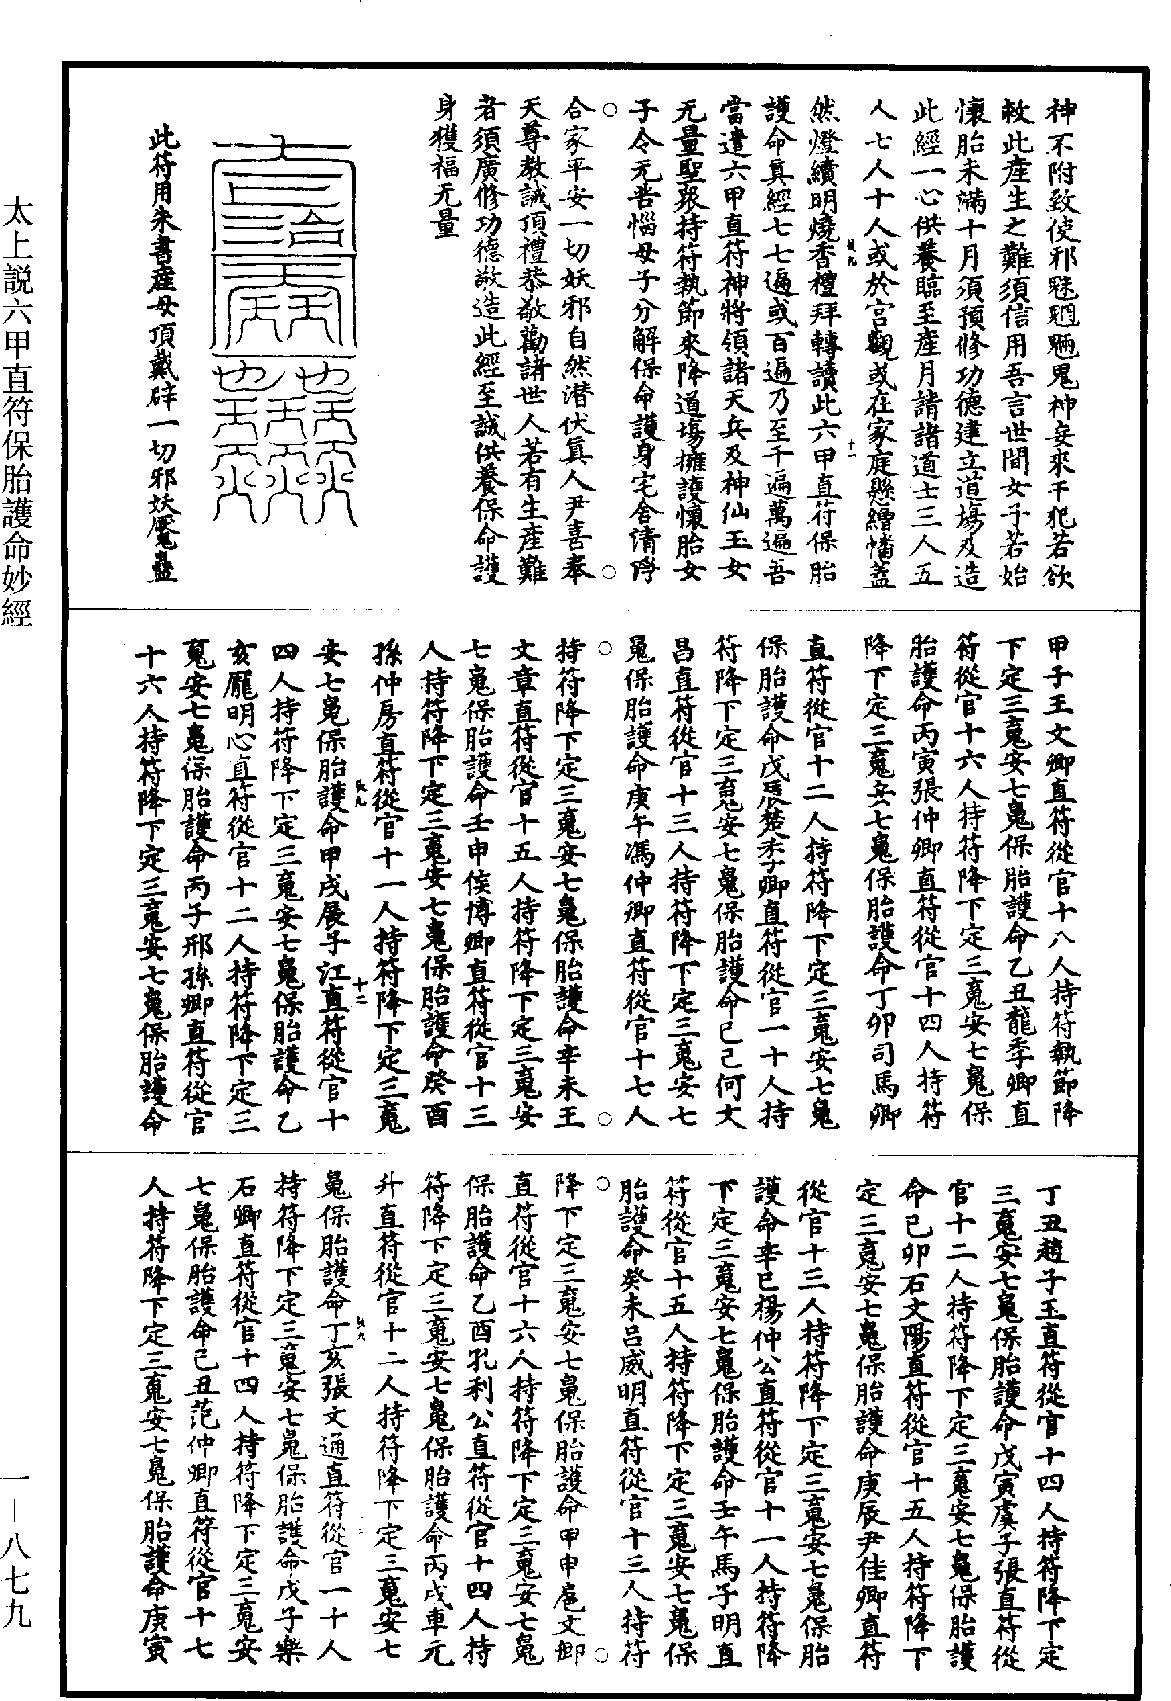 太上説六甲直符保胎護命妙經
一—八七九
神不附致使邪魅魍魎鬼神妄來干犯若欲
救此産生之難須信用吾言世間女子若始
懷胎未滿十月須預修功德建立道場及造
此經一心供養臨至産月請諸道士三人五
人七人十人或於宫觀或在家庭懸繒幡蓋
然燈續明燒香禮拜轉讀此六甲直符保胎
護命真經七七遍或百遍乃至千遍萬遍吾
當遣六甲直符神將領諸天兵及神仙玉女
无量聖衆持符執節來降道場擁護懷胎女
子令无苦惱母子分解保命護身宅舍清淨
合家平安一切妖邪自然潜伏真人尹喜奉
天尊教誡頂禮恭敬勸諸世人若有生産難
者須廣修功德敬造此經至誠供養保命護
身獲福无量
此符用朱書産母頂戴辟一切邪妖魘蠱
甲子王文卿直符從官十八人持符執節降
下定三䰟安七䰟保胎護命乙丑龍季卿直
符從官十六人持符降下定三䰟安七䰟保
胎護命丙寅張仲卿直符從官十四人持符
降下定三䰟安七䰟保胎護命丁卯司馬卿
直符從官十二人持符降下定三䰟安七䰟
保胎護命戊辰楚季卿直符從官一十人持
符降下定三䰟安七䰟保胎護命己巳何文
昌直符從官十三人持符降下定三䰟安七
䰟保胎護命庚午馮仲卿直符從官十七人
持符降下定三䰟安七䰟保胎護命辛未王
文章直符從官十五人持符降下定三䰟安
七䰟保胎護命壬申侯博卿直符從官十三
人持符降下定三䰟安七䰟保胎護命癸酉
孫仲房直符從官十一人持符降下定三䰟
十二
安七䰟保胎護命甲戌展子江直符從官十
四人持符降下定三䰟安七䰟保胎護命乙
亥龐明心直符從官十二人持符降下定三
䰟安七䰟保胎護命丙子邢孫卿直符從官
十六人持符降下定三䰟安七䰟保胎護命
丁丑趙子玉直符從官十四人持符降下定
三䰟安七䰟保胎護命戊寅虞子張直符從
官十二人持符降下定三䰟安七䰟保胎護
命己卯石文陽直符從官十五人持符降下
定三䰟安七䰟保胎護命庚辰尹佳卿直符
從官十三人持符降下定三䰟安七䰟保胎
護命辛巳楊仲公直符從官十一人持符降
下定三䰟安七䰟保胎護命壬午馬子明直
符從官十五人持符降下定三䰟安七䰟保
胎護命癸未吕威明直符從官十三人持符
降下定三䰟安七䰟保胎護命甲申扈文卿
直符從官十六人持符降下定三䰟安七䰟
保胎護命乙酉孔利公直符從官十四人持
符降下定三䰟安七䰟保胎護命丙戌車元
升直符從官十二人持符降下定三䰟安七
䰟保胎護命丁亥張文通直符從官一十人
持符降下定三䰟安七䰟保胎護命戊子樂
石卿直符從官十四人持符降下定三䰟安
七䰟保胎護命己丑范仲卿直符從官十七
人持符降下定三䰟安七䰟保胎護命庚寅